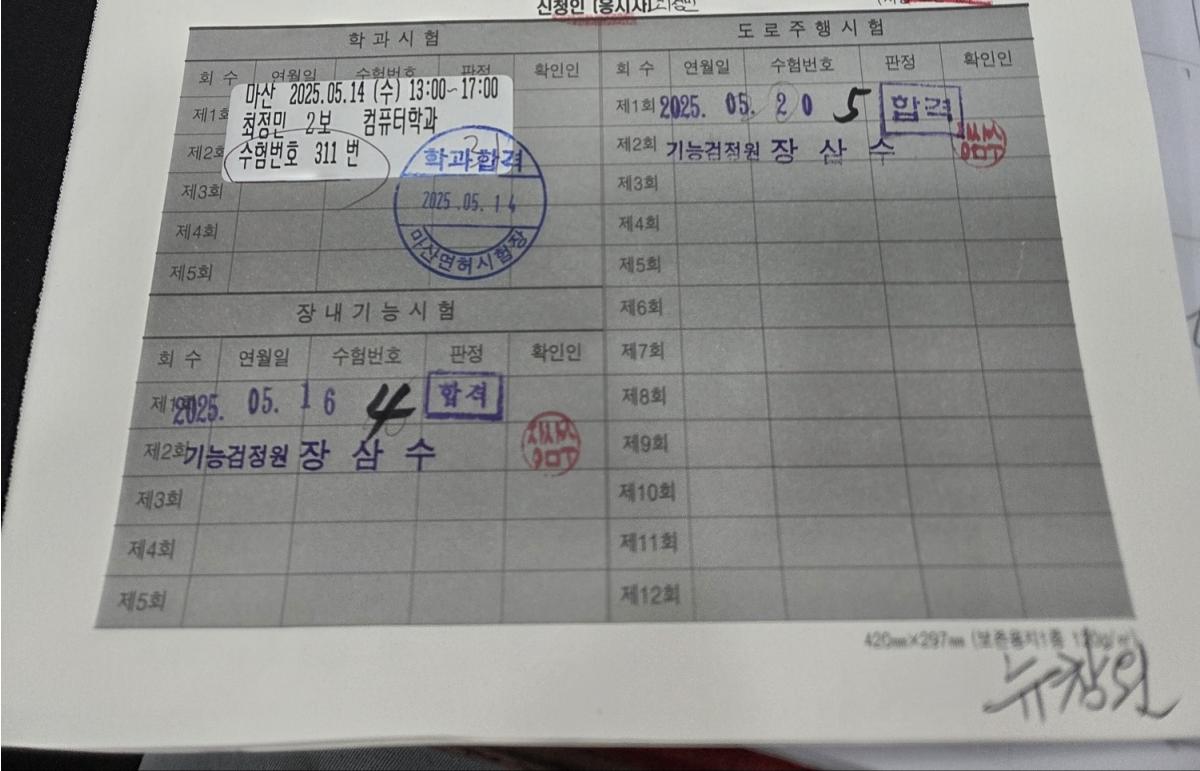 신청인 (응시자)
학 과 시 험
회 수 연월일 수험번호 판정 확인인
마산 2025.05.14 (수) 13:00~17:00
최정민 2보 컴퓨터학과
수험번호 311 번
제1회
제2회
제3회
제4회
제5회
학과합격
2025.05.14
마산면허시험장
장 내 기 능 시 험
회 수 연월일 수험번호 판정 확인인
제1회 2025. 05. 16 4 합격
제2회 기능검정원 장 삼 수
제3회
제4회
제5회
도 로 주 행 시 험
회 수 연월일 수험번호 판정 확인인
제1회 2025. 05. 20 5 합격
제2회 기능검정원 장 삼 수
제3회
제4회
제5회
제6회
제7회
제8회
제9회
제10회
제11회
제12회
420㎜×297㎜ (보존용지1종 120g/㎡)
뉴창원